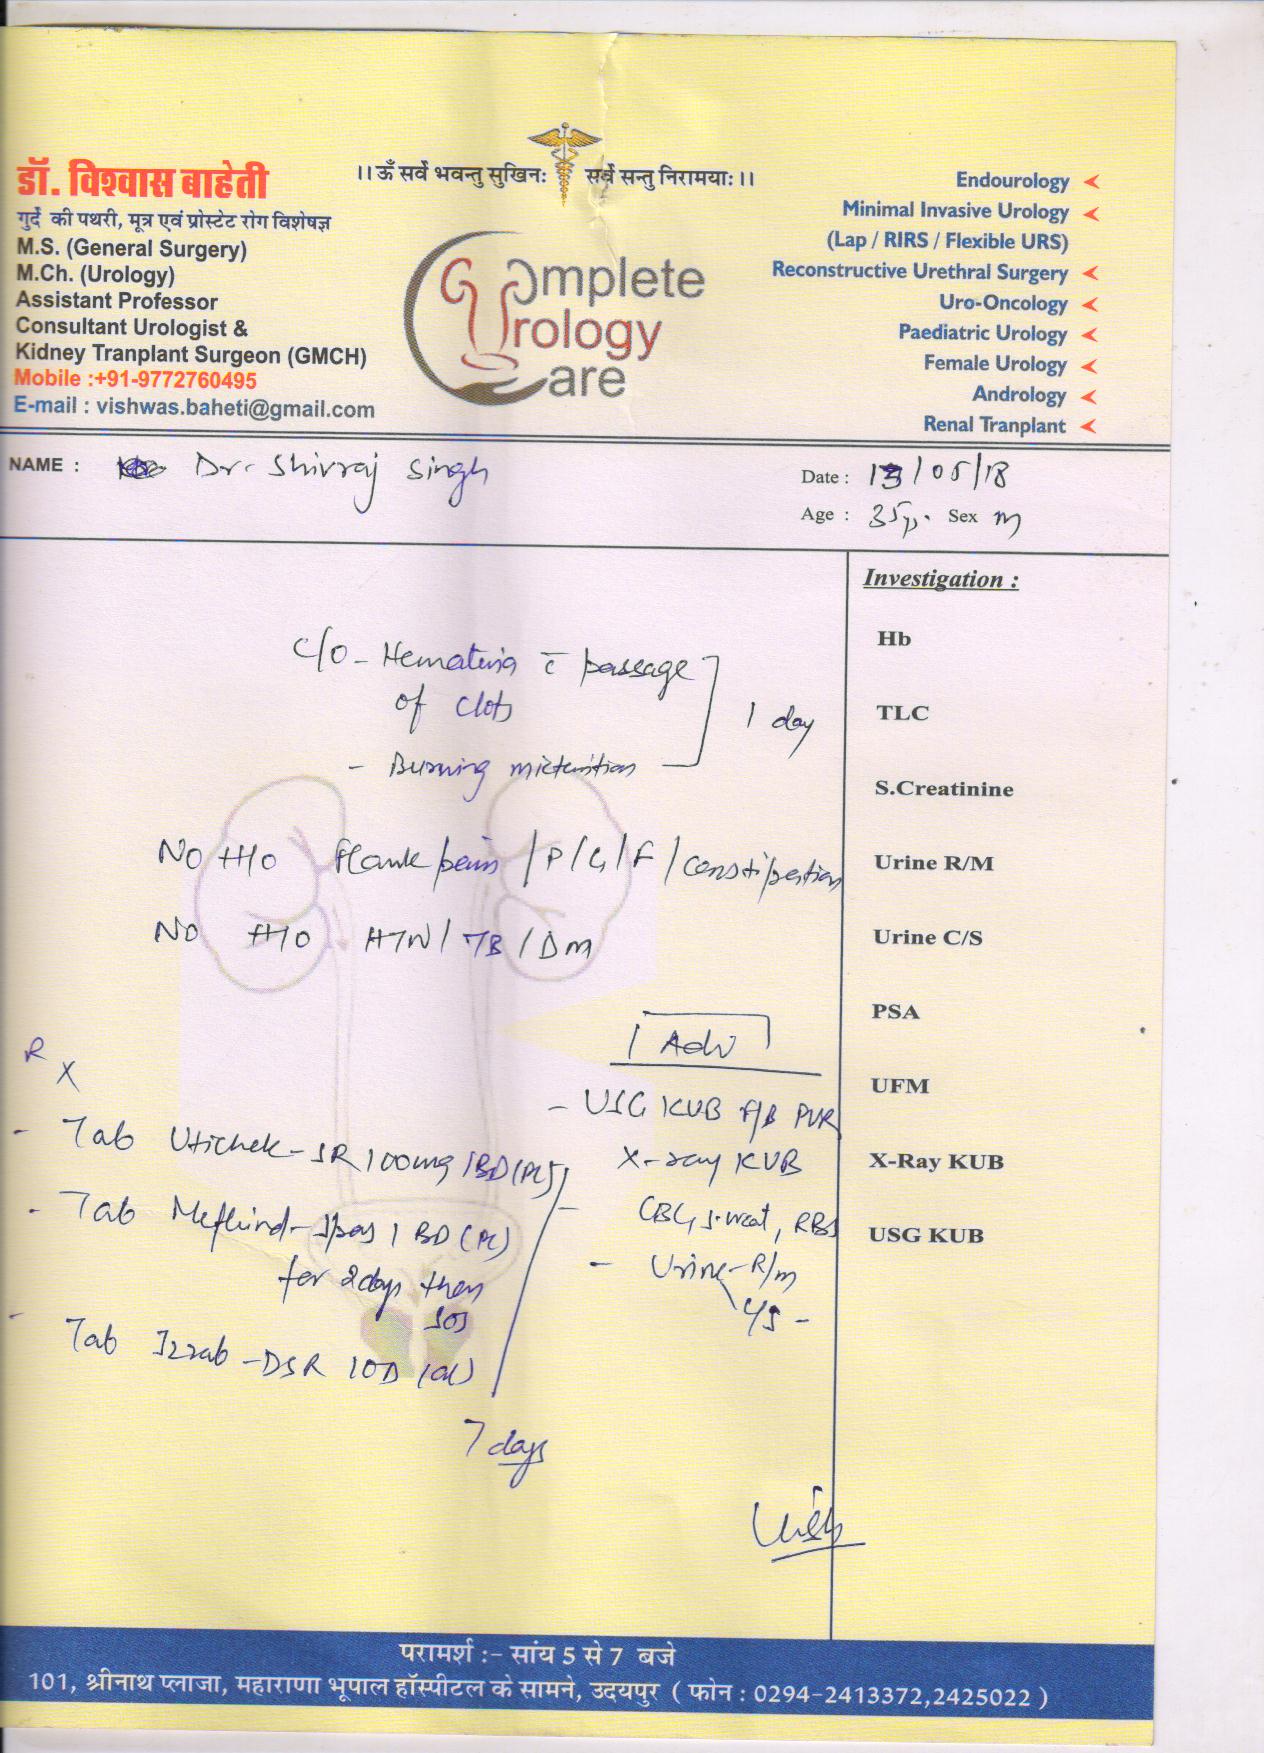 ।। ॐ सर्वे भवन्तु सुखिनः सर्वे सन्तु निरामयाः ।।
डॉ. विश्वास बाहेती
गुर्दे की पथरी, मूत्र एवं प्रोस्टेट रोग विशेषज्ञ
M.S. (General Surgery)
M.Ch. (Urology)
Assistant Professor
Consultant Urologist &
Kidney Tranplant Surgeon (GMCH)
Mobile :+91-9772760495
E-mail : vishwas.baheti@gmail.com
Complete
Urology
Care
Endourology
Minimal Invasive Urology
(Lap / RIRS / Flexible URS)
Reconstructive Urethral Surgery
Uro-Oncology
Paediatric Urology
Female Urology
Andrology
Renal Tranplant
NAME : Dr. Shivraj Singh
Date : 13/05/18
Age : 35y. Sex M
C/O - Hematuria c̄ passage
of clots
- Burning micturition
1 day
NO H/O Flank pain / P/G/F / constipation
NO H/O HTN / TB / DM
Rx
- Tab Utichek-SR 100mg 1BD (PC)
- Tab Mefkind-Spas 1 BD (PC)
for 2 days then
SOS
- Tab Izrab-DSR 1OD (AC)
7 days
Adv
- USG KUB F/B PVR
X-ray KUB
- CBC, S. creat, RBS
- Urine - R/M
C/S -
Investigation :
Hb
TLC
S.Creatinine
Urine R/M
Urine C/S
PSA
UFM
X-Ray KUB
USG KUB
परामर्श :- सांय 5 से 7 बजे
101, श्रीनाथ प्लाजा, महाराणा भूपाल हॉस्पीटल के सामने, उदयपुर ( फोन : 0294-2413372,2425022 )